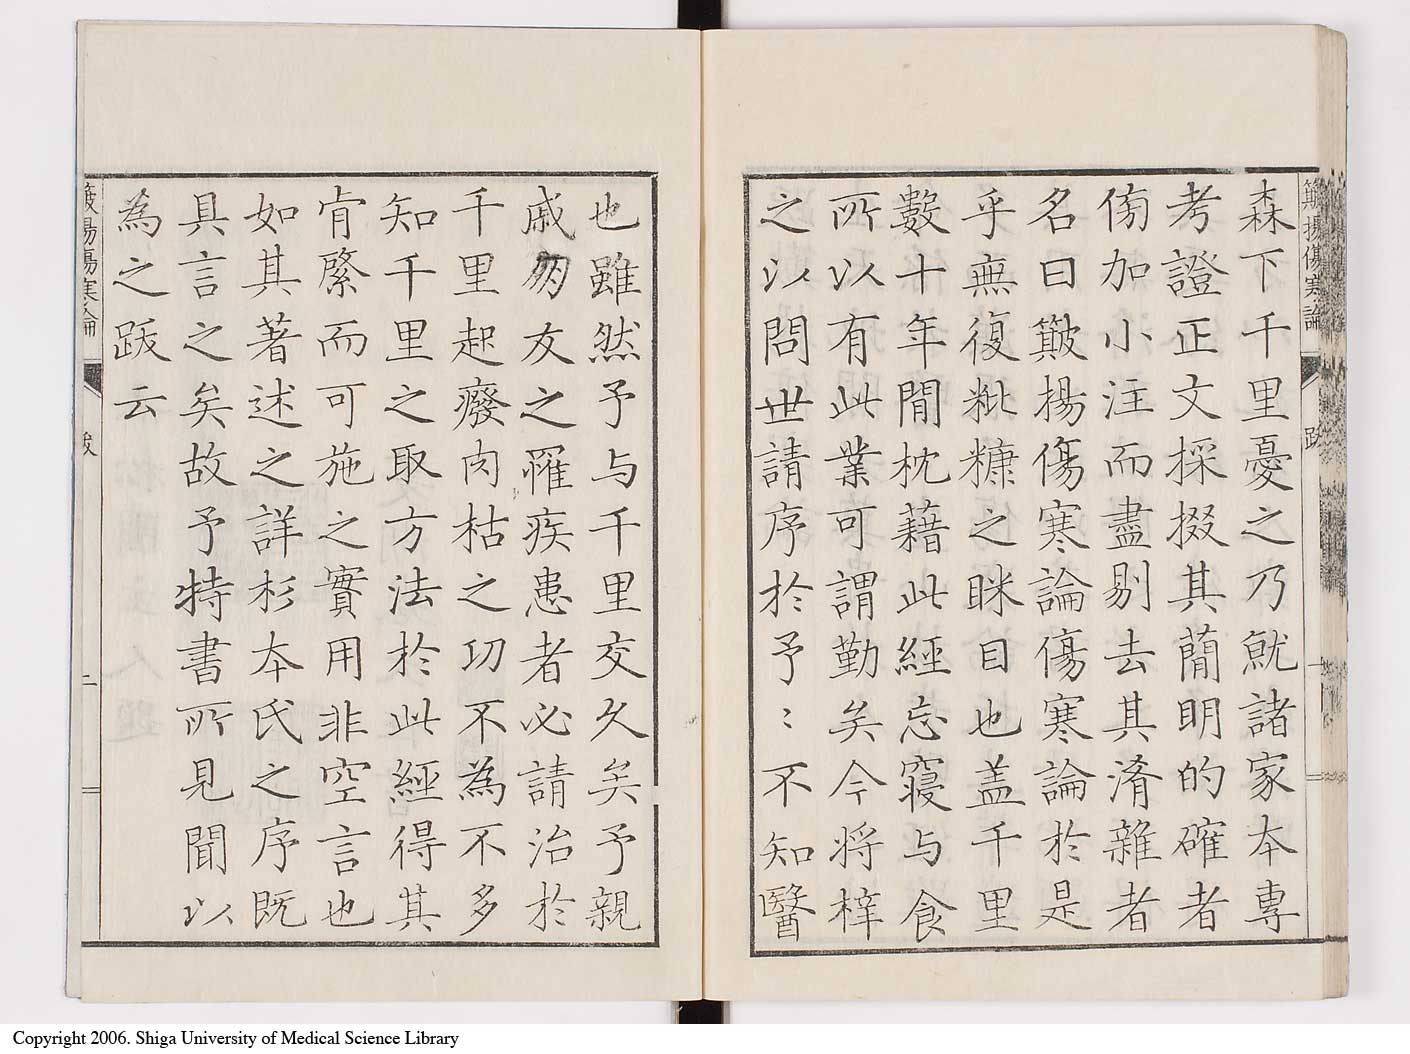 簸揚傷寒論 跋 一
森下千里憂之乃就諸家本專
考證正文採掇其簡明的確者
傍加小注而盡剔去其淆雜者
名曰簸揚傷寒論傷寒論於是
乎無復粃糠之眯目也盖千里
數十年間枕藉此經忘寢与食
所以有此業可謂勤矣今将梓
之以問世請序於予〻不知醫
也雖然予与千里交久矣予親
戚朋友之罹疾患者必請治於
千里起癈肉枯之功不為不多
知千里之取方法於此經得其
肯綮而可施之實用非空言也
如其著述之詳杉本氏之序既
具言之矣故予特書所見聞以
為之跋云
簸揚傷寒論 跋 二
Copyright 2006. Shiga University of Medical Science Library